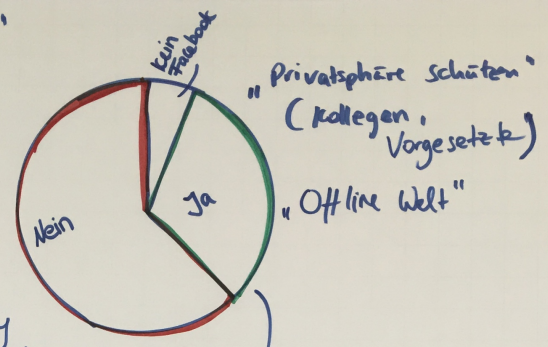 Kein
Facebook
"Privatsphäre schützen"
(Kollegen,
Vorgesetzte)
Ja
"Offline Welt"
Nein